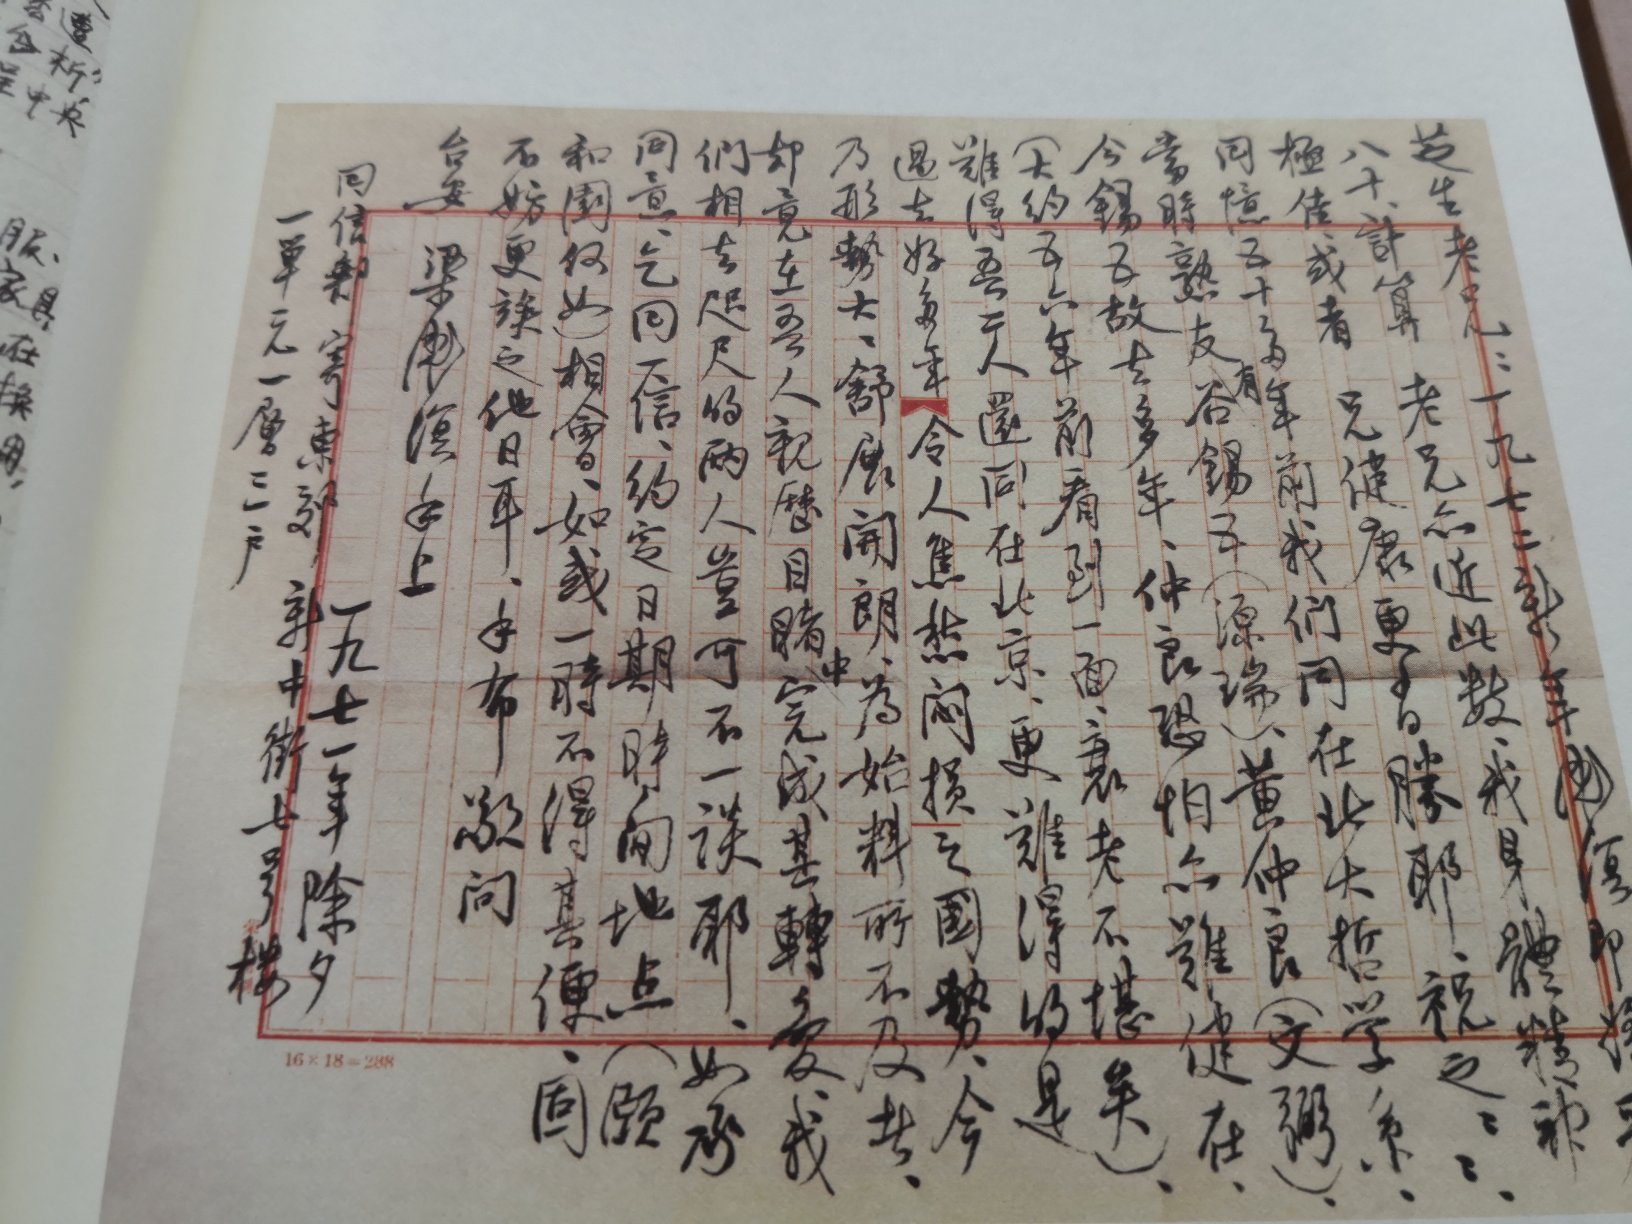 芝生老兄：一九七二新年漱溟即将
八十、計算 老兄亦近此数、我身體精神
極佳或者 兄健康更百勝耶、祝之
回憶五十多年前我們同在北大哲学系、
當時熟友有谷錫五（源瑞）、黄仲良（文弼）、
今錫五故去多年、仲良恐怕亦難健在、
（大约五六年前看到一面、衰老不堪矣）、
難得吾二人還同在北京、更難得的是
過去好多年令人焦愁闷损之國勢、今
乃形勢大、舒展開朗、為始料所不及者、
却竟在吾人親歷目睹中完成其轉變、我
們相去咫尺的兩人豈可不一谈耶、如承
同意、乞回一信、约定日期時間地点（頤
和園何如）相會、如或一時不得其便、固
不妨更談之他日耳、手布 敬问
台安 梁漱溟手上
一九七一年除夕
回信 寄東郊 新中街七号楼
一單元一層三户
16×18＝288